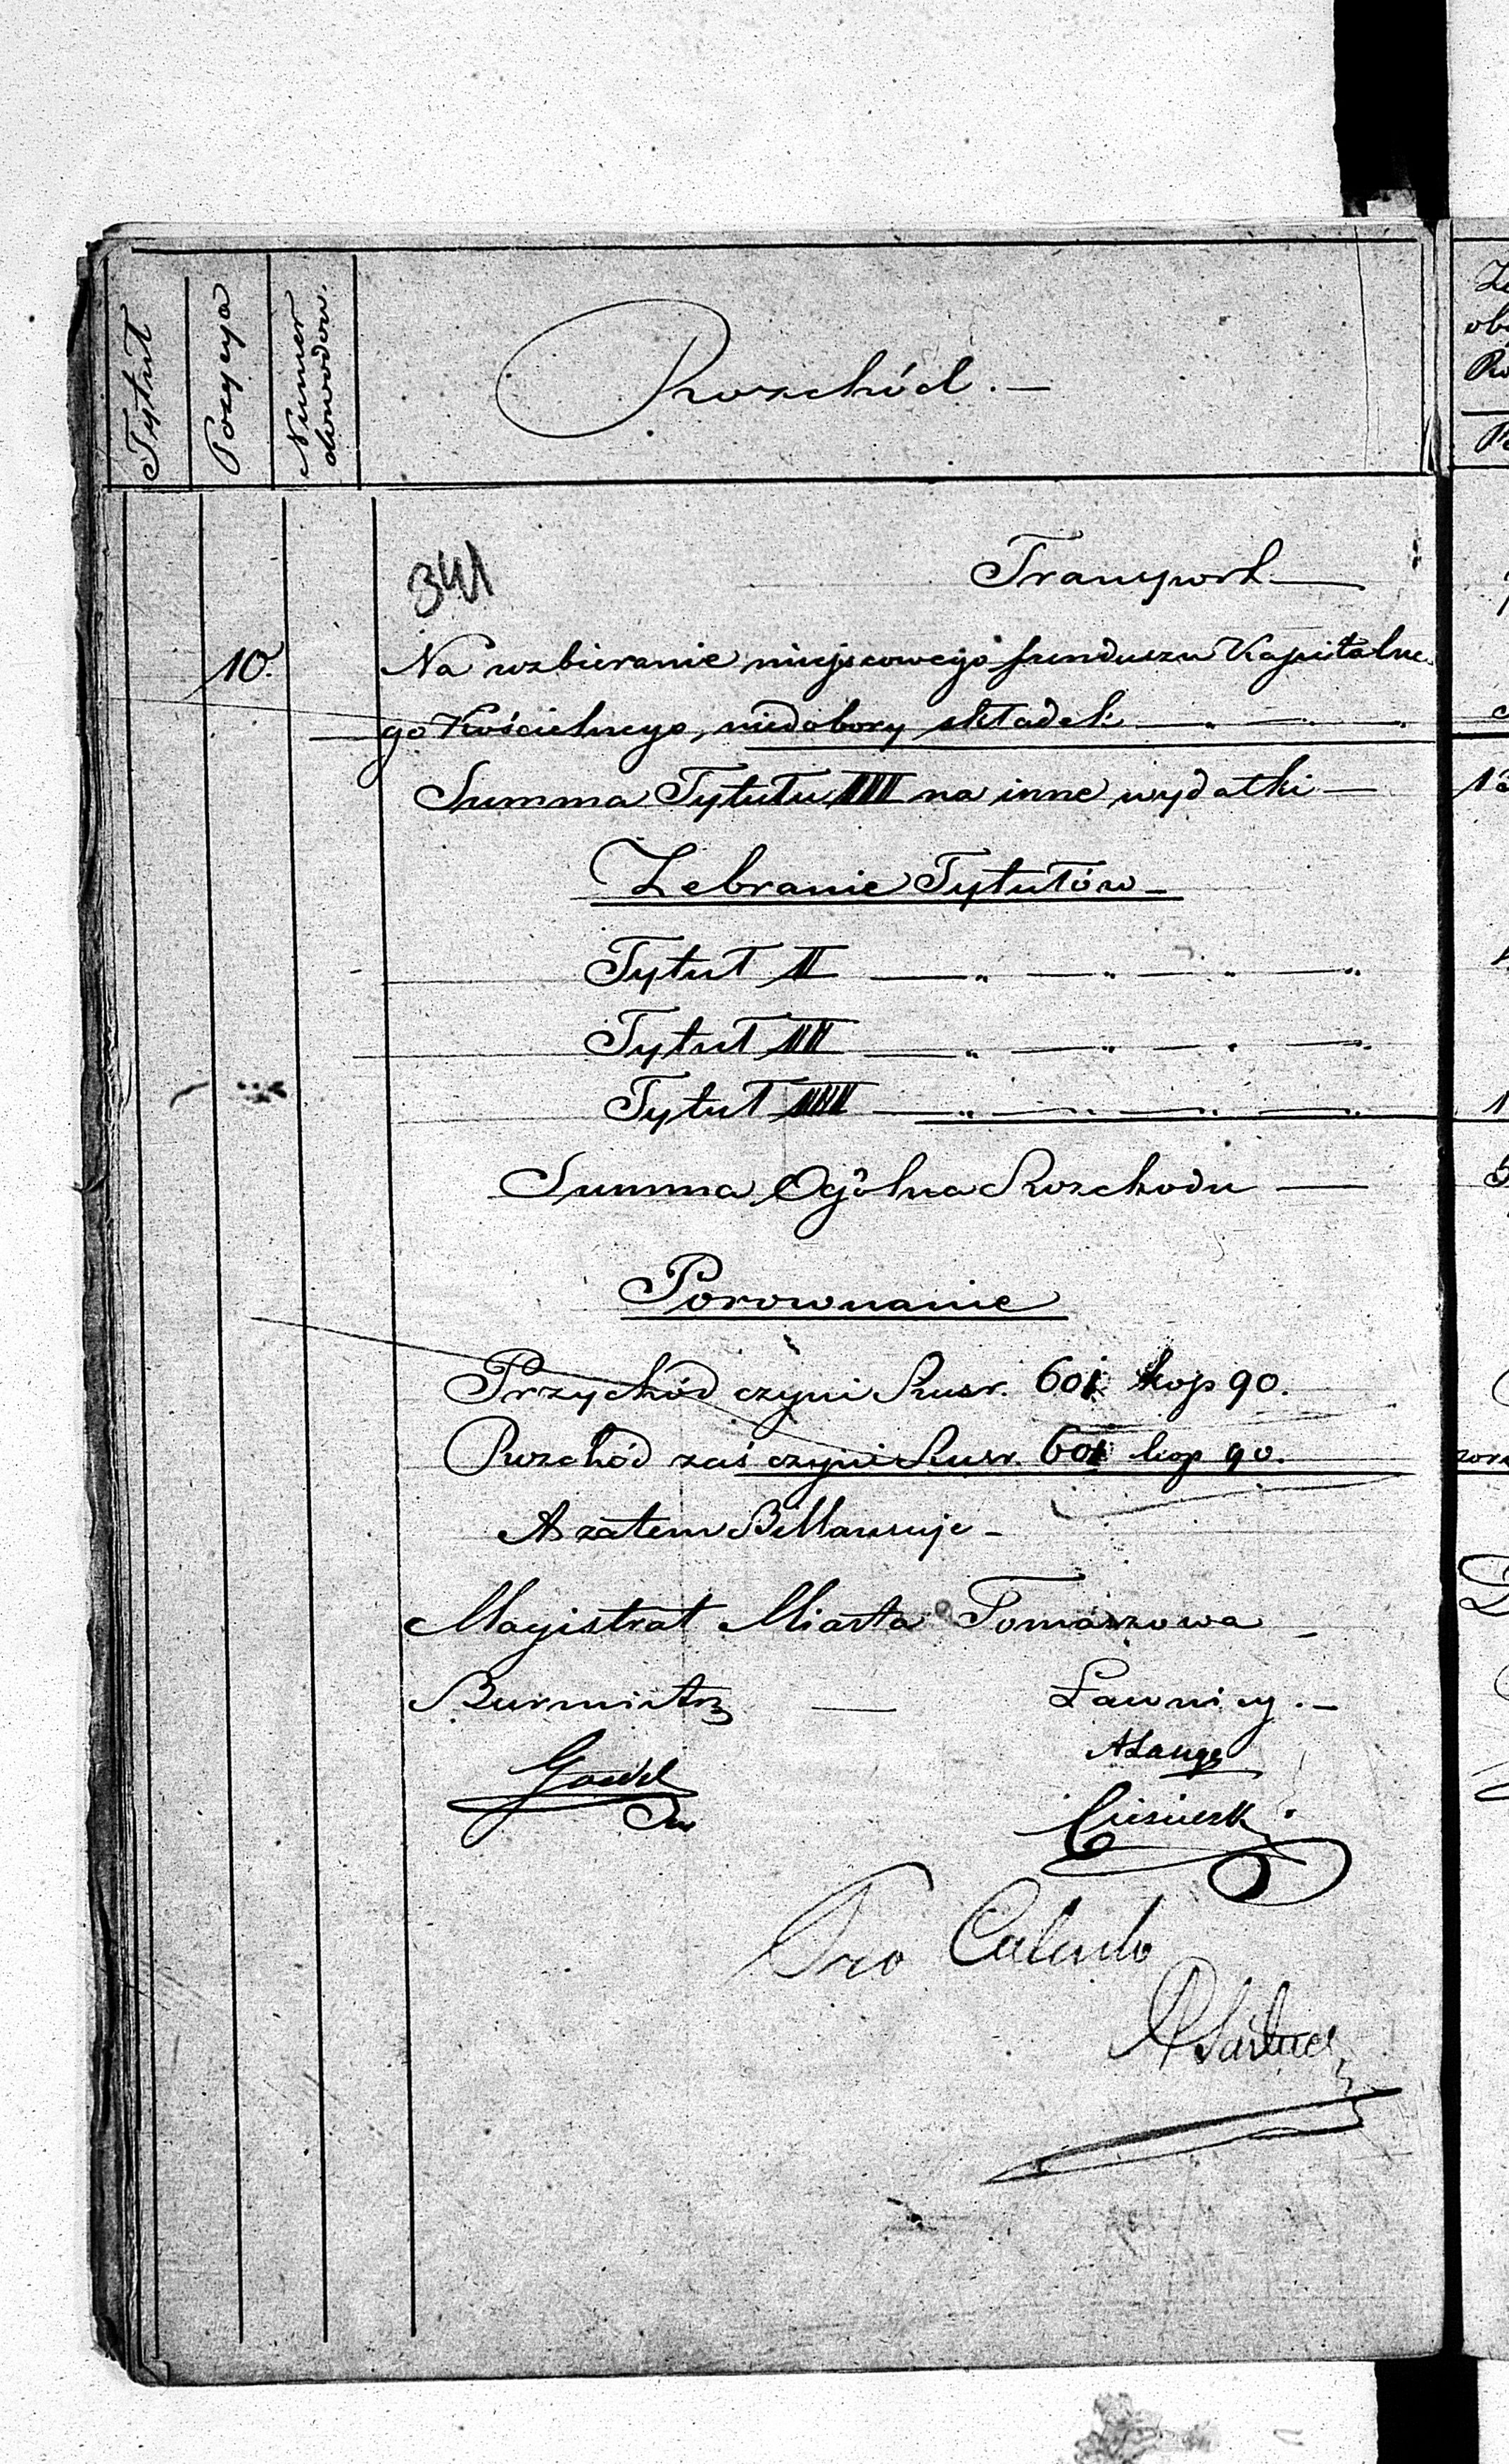 Tytuł
Pozycya
Numer
dowodow.
Rozchód. —
341
Transport —
10. Na uzbieranie miejscowego funduszu Kapitalne
go Kościelnego, niedobory składek
Summa Tytułu IIII na inne wydatki —
Zebranie Tytułów —
Tytuł II
Tytuł III
Tytuł IIII
Summa Ogólna Rozchodu —
Porownanie
Przychód czyni Rusr. 601 kop 90.
Rozchód zaś czyni Rusr. 601 kop 90.
A zatem Billansuje —
Magistrat Miasta Tomaszowa —
Burmistrz — Ławnicy. —
ALange
Pro Calculo